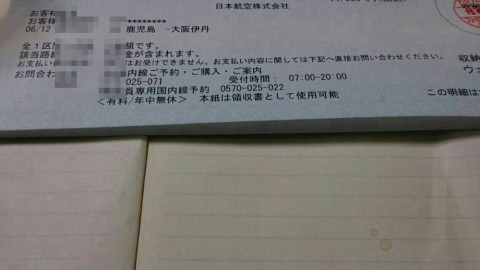 日本航空株式会社
お客
お客様 ********
06/12 鹿児島 -大阪伊丹
全1区間 額です。
該当路線 金が含まれます。
お支払い はお受けできません。お支払い内容に関しては下記へ直接お問い合わせください。
お問合わ 内線ご予約・ご購入・ご案内
025-071 受付時間: 07:00-20:00
員専用国内線予約 0570-025-022
<有料/年中無休> 本紙は領収書として使用可能
収納
ウェ
この明細は